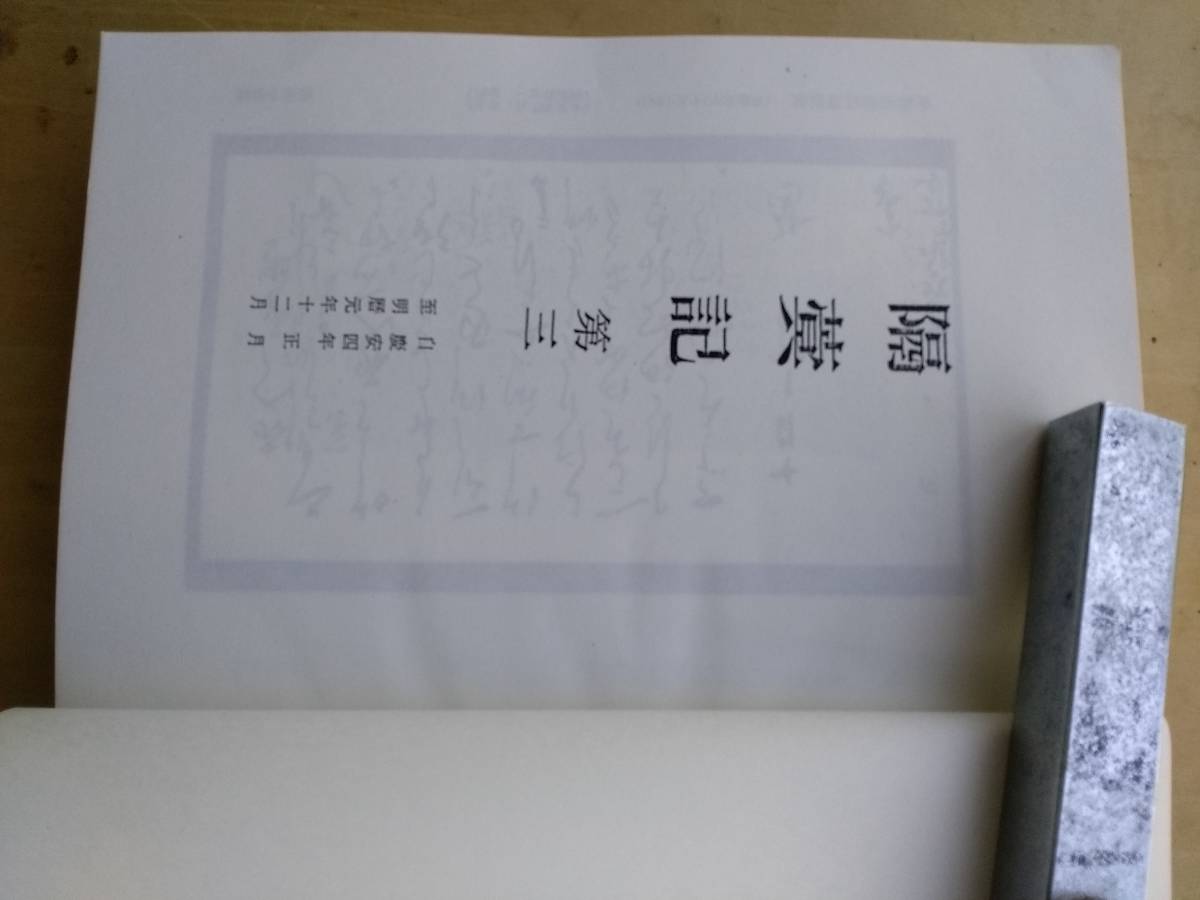 隔蓂記 第三
自慶安四年正月
至明暦元年十二月